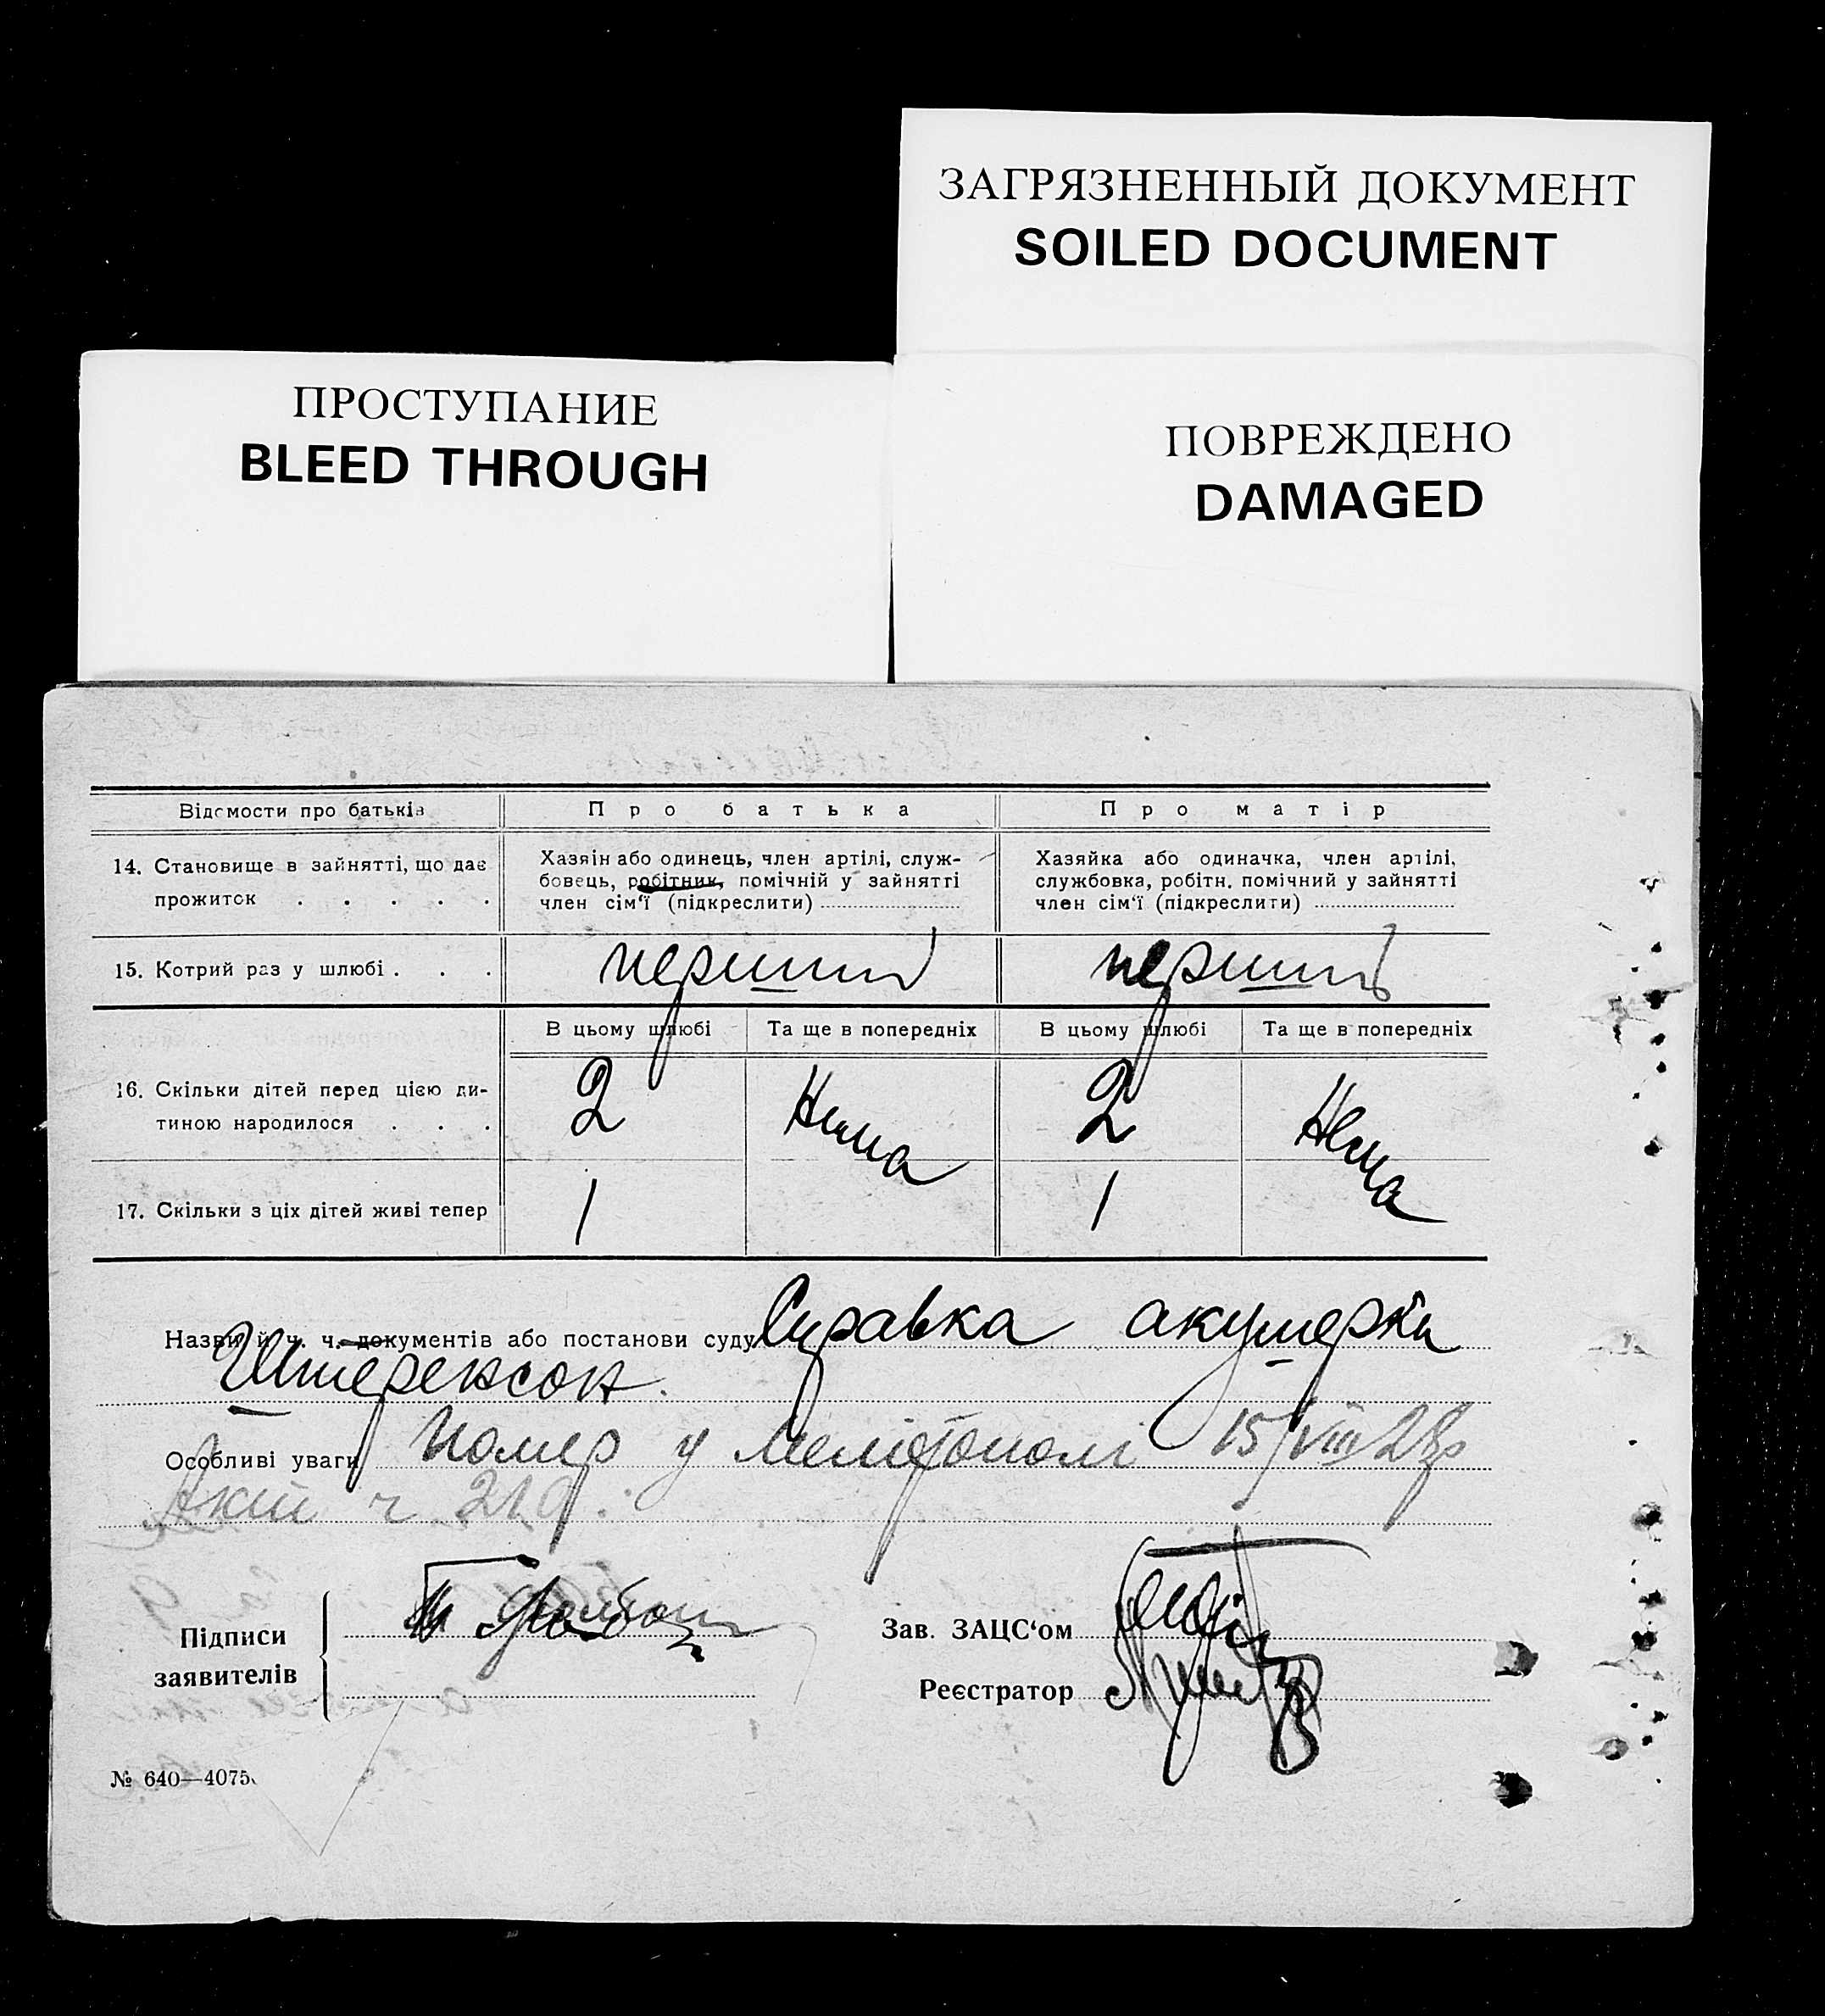 ЗАГРЯЗНЕННЫЙ ДОКУМЕНТ
SOILED DOCUMENT
ПРОСТУПАНИЕ
BLEED THROUGH
ПОВРЕЖДЕНО
DAMAGED
Відомости про батьків
Про батька
Про матір
14. Становище в зайнятті, що дає
прожиток . . . . .
Хазяїн або одинець, член артілі, служ-
бовець, робітник, помічній у зайнятті
член сім‘ї (підкреслити)
Хазяйка або одиначка, член артілі,
службовка, робітн. помічний у зайнятті
член сім‘ї (підкреслити)
15. Котрий раз у шлюбі . . .
перший
перший
В цьому шлюбі
Та ще в попередніх
В цьому шлюбі
Та ще в попередніх
16. Скільки дітей перед цією ди-
тиною народилося . . .
2
Нема
2
Нема
17. Скільки з ціх дітей живі тепер
1
1
Назви й ч. ч. документів або постанови суду Справка акушерки
Штеренсон.
Особливі уваги Помер у Мелітополі 15/VIII 28р
Акт ч 219.
Підписи
заявителів
Зав. ЗАЦС‘ом
Реєстратор
№ 640—4075